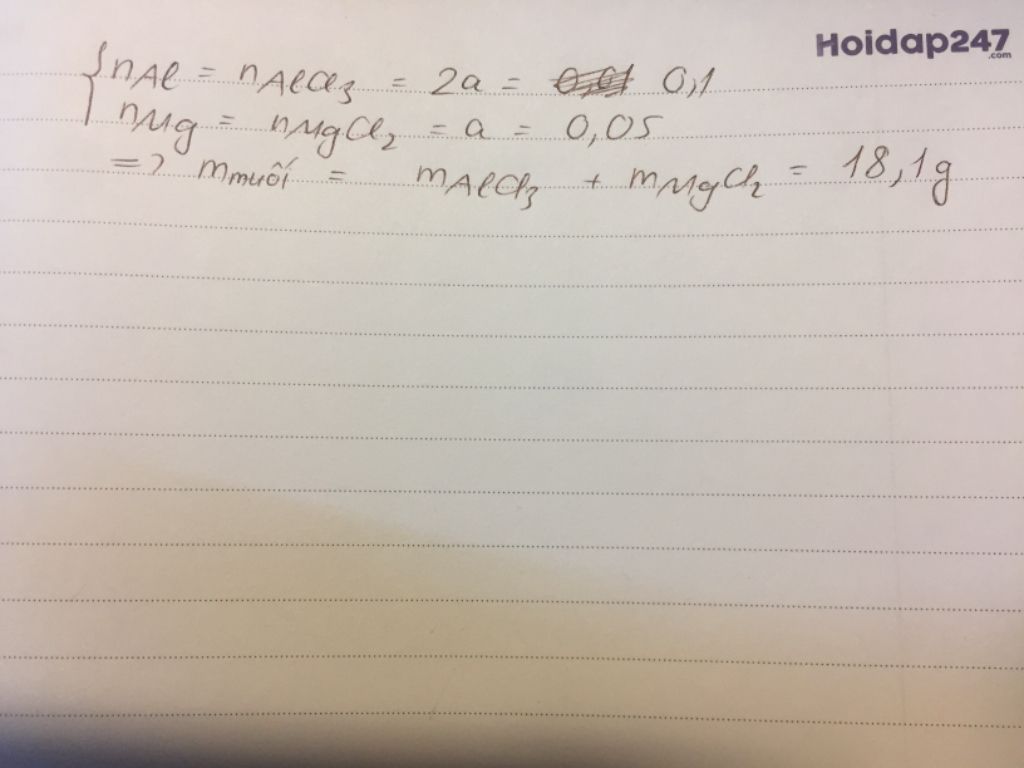 Hoidap247
.com
{nAl = nAlCl3 = 2a = 0,1
nMg = nMgCl2 = a = 0,05
=> mmuối = mAlCl3 + mMgCl2 = 18,1g